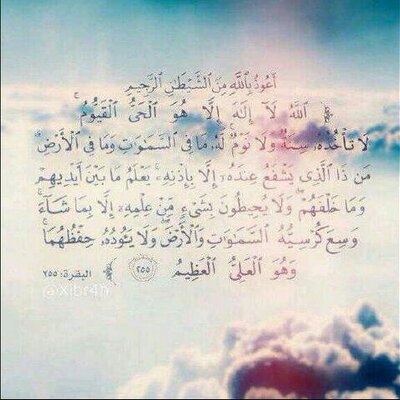 أَعُوذُ بِاللَّهِ مِنَ الشَّيْطَٰنِ الرَّجِيمِ
اللَّهُ لَآ إِلَٰهَ إِلَّا هُوَ الْحَىُّ الْقَيُّومُ ۚ
لَا تَأْخُذُهُۥ سِنَةٌ وَلَا نَوْمٌ ۚ لَّهُۥ مَا فِى السَّمَٰوَٰتِ وَمَا فِى الْأَرْضِ ۗ
مَن ذَا الَّذِى يَشْفَعُ عِندَهُۥٓ إِلَّا بِإِذْنِهِۦ ۚ يَعْلَمُ مَا بَيْنَ أَيْدِيهِمْ
وَمَا خَلْفَهُمْ ۖ وَلَا يُحِيطُونَ بِشَىْءٍ مِّنْ عِلْمِهِۦٓ إِلَّا بِمَا شَآءَ ۚ
وَسِعَ كُرْسِيُّهُ السَّمَٰوَٰتِ وَالْأَرْضَ ۖ وَلَا يَـُٔودُهُۥ حِفْظُهُمَا ۚ
وَهُوَ الْعَلِىُّ الْعَظِيمُ ٢٥٥ البقرة: ٢٥٥
@xibr4h